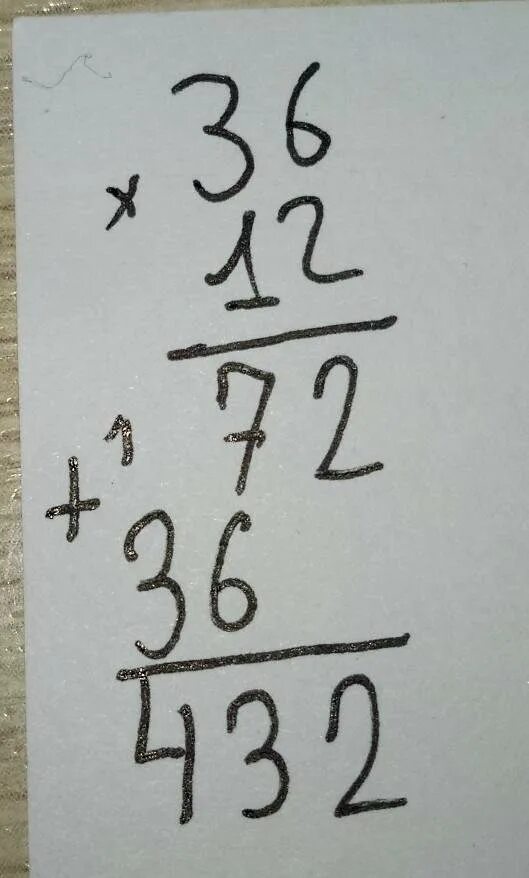 36
× 12
72
+ 1
36
432